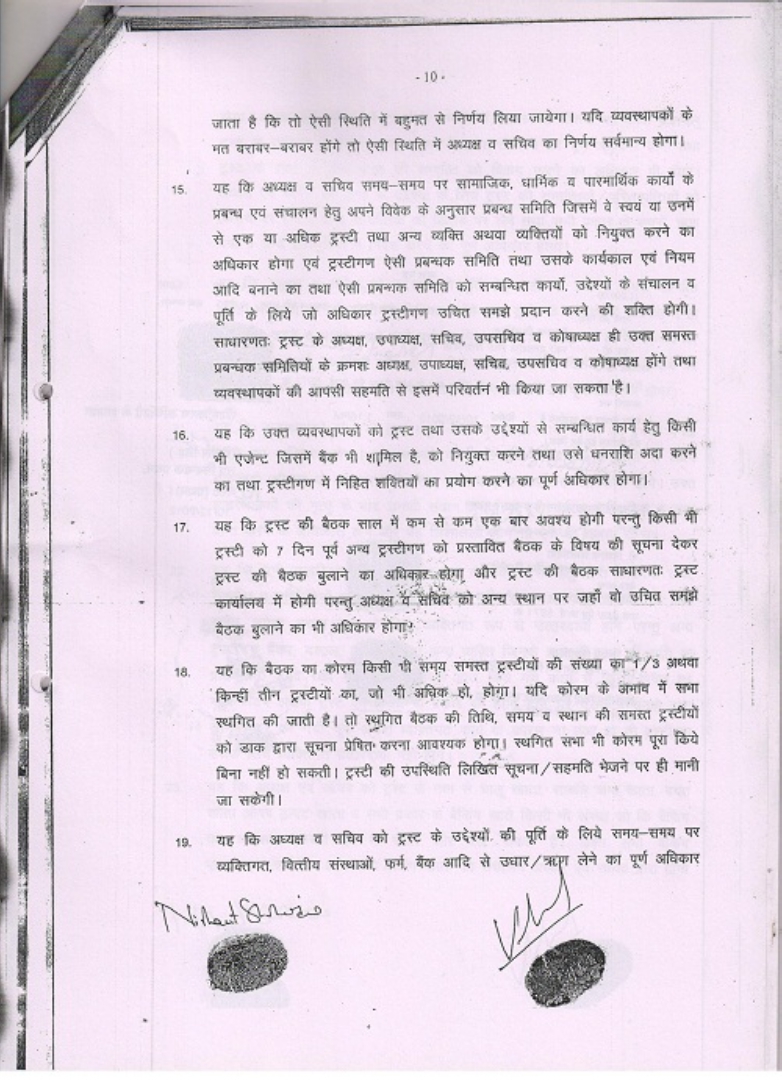 - 10 -
जाता है कि तो ऐसी स्थिति में बहुमत से निर्णय लिया जायेगा। यदि व्यवस्थापकों के
मत बराबर–बराबर होंगे तो ऐसी स्थिति में अध्यक्ष व सचिव का निर्णय सर्वमान्य होगा।
15. यह कि अध्यक्ष व सचिव समय–समय पर सामाजिक, धार्मिक व पारमार्थिक कार्यों के
प्रबन्ध एवं संचालन हेतु अपने विवेक के अनुसार प्रबन्ध समिति जिसमें वे स्वयं या उनमें
से एक या अधिक ट्रस्टी तथा अन्य व्यक्ति अथवा व्यक्तियों को नियुक्त करने का
अधिकार होगा एवं ट्रस्टीगण ऐसी प्रबन्धक समिति तथा उसके कार्यकाल एवं नियम
आदि बनाने का तथा ऐसी प्रबन्धक समिति को सम्बन्धित कार्यो, उद्देश्यों के संचालन व
पूर्ति के लिये जो अधिकार ट्रस्टीगण उचित समझे प्रदान करने की शक्ति होगी।
साधारणतः ट्रस्ट के अध्यक्ष, उपाध्यक्ष, सचिव, उपसचिव व कोषाध्यक्ष ही उक्त समस्त
प्रबन्धक समितियों के क्रमशः अध्यक्ष, उपाध्यक्ष, सचिव, उपसचिव व कोषाध्यक्ष होंगे तथा
व्यवस्थापकों की आपसी सहमति से इसमें परिवर्तन भी किया जा सकता है।
16. यह कि उक्त व्यवस्थापकों को ट्रस्ट तथा उसके उद्देश्यों से सम्बन्धित कार्य हेतु किसी
भी एजेन्ट जिसमें बैंक भी शामिल है, को नियुक्त करने तथा उसे धनराशि अदा करने
का तथा ट्रस्टीगण में निहित शक्तियों का प्रयोग करने का पूर्ण अधिकार होगा।
17. यह कि ट्रस्ट की बैठक साल में कम से कम एक बार अवश्य होगी परन्तु किसी भी
ट्रस्टी को 7 दिन पूर्व अन्य ट्रस्टीगण को प्रस्तावित बैठक के विषय की सूचना देकर
ट्रस्ट की बैठक बुलाने का अधिकार होगा और ट्रस्ट की बैठक साधारणतः ट्रस्ट
कार्यालय में होगी परन्तु अध्यक्ष व सचिव को अन्य स्थान पर जहाँ वो उचित समझे
बैठक बुलाने का भी अधिकार होगा।
18. यह कि बैठक का कोरम किसी भी समय समस्त ट्रस्टीयों की संख्या का 1/3 अथवा
किन्हीं तीन ट्रस्टीयों का, जो भी अधिक हो, होगा। यदि कोरम के अभाव में सभा
स्थगित की जाती है। तो स्थगित बैठक की तिथि, समय व स्थान की समस्त ट्रस्टीयों
को डाक द्वारा सूचना प्रेषित करना आवश्यक होगा। स्थगित सभा भी कोरम पूरा किये
बिना नहीं हो सकती। ट्रस्टी की उपस्थिति लिखित सूचना/सहमति भेजने पर ही मानी
जा सकेगी।
19. यह कि अध्यक्ष व सचिव को ट्रस्ट के उद्देश्यों की पूर्ति के लिये समय–समय पर
व्यक्तिगत, वित्तीय संस्थाओं, फर्म, बैंक आदि से उधार/ऋण लेने का पूर्ण अधिकार